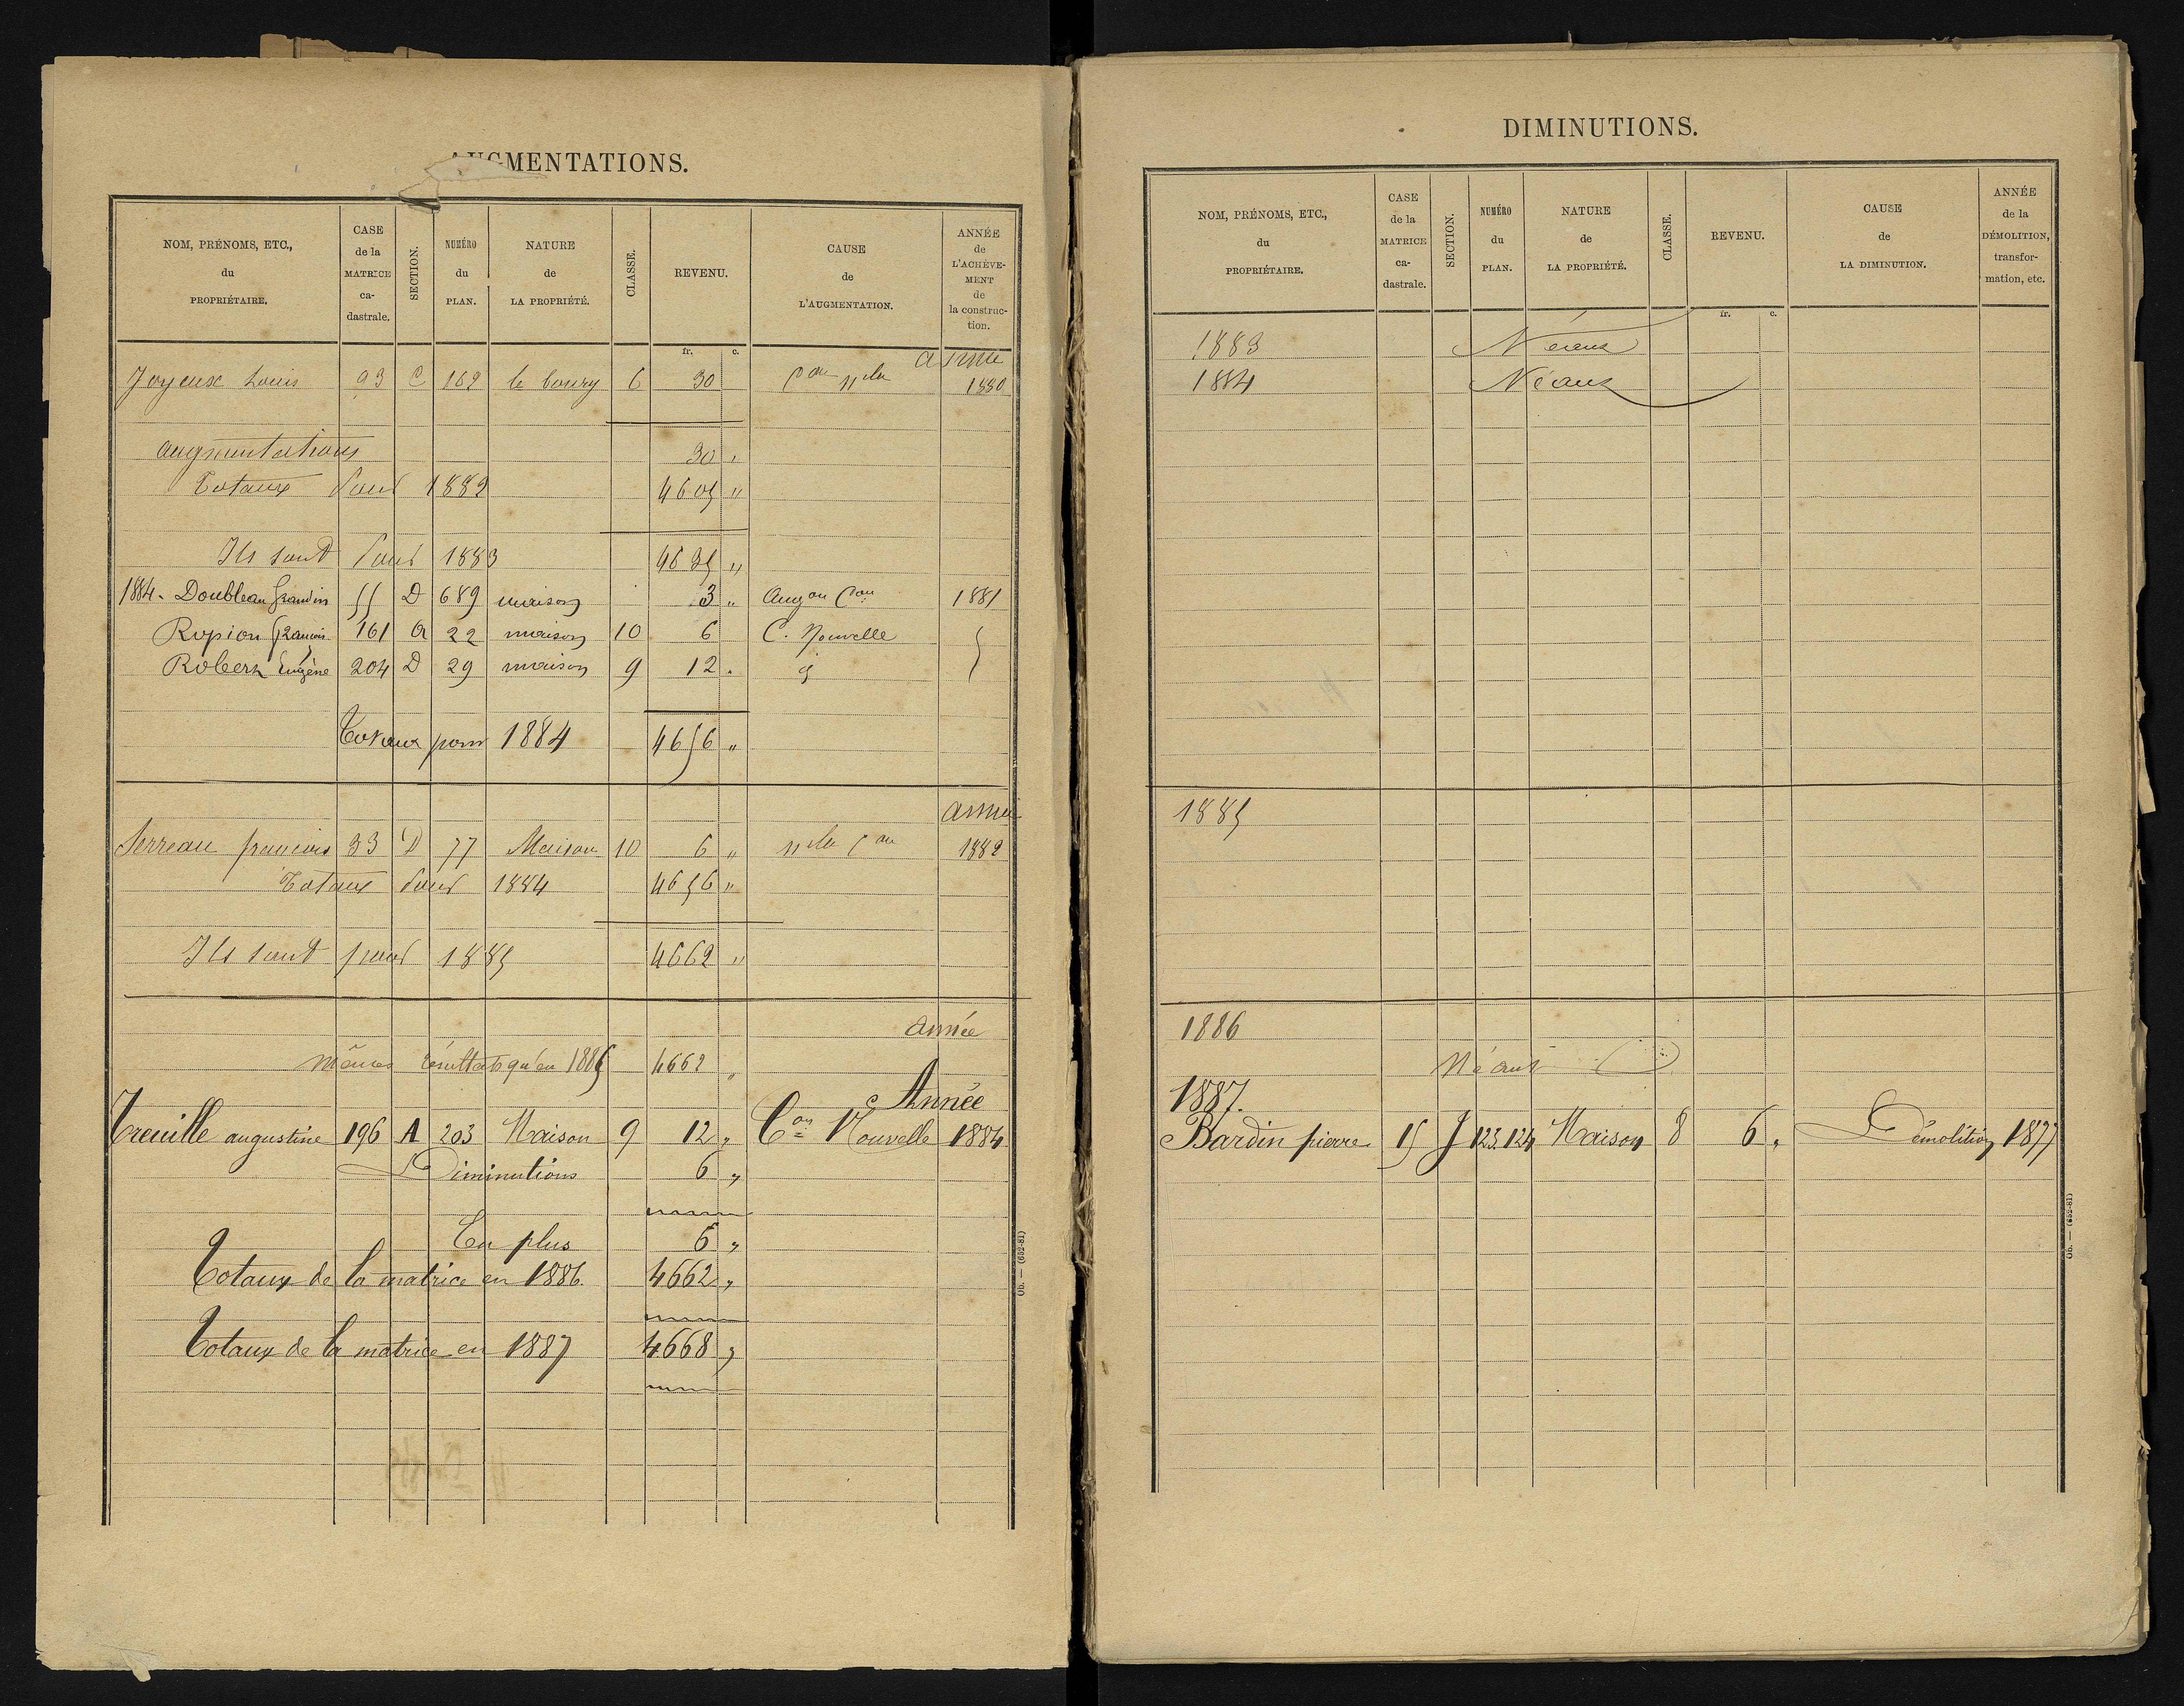 AUGMENTATIONS.
NOM, PRÉNOMS, ETC., du PROPRIÉTAIRE. CASE de la MATRICE ca-dastrale. SECTION. NUMÉRO du PLAN. NATURE de LA PROPRIÉTÉ. CLASSE. REVENU. CAUSE de L'AUGMENTATION. ANNÉE de L'ACHÈVE-MENT de la construc-tion.
fr. c.
Joyeux Louis 93 C 169 le bourg 6 30 con nlle 1880
augmentations 30 "
Totaux pour 1882 4605 "
Ils sont pour 1883 4635 "
1884. Doubleau 55 D 689 maison 3 " Augon Con 1881
Ropion François 161 A 22 maison 10 6 C. Nouvelle
Robert Eugène 204 D 29 maison 9 12 "
Totaux pour 1884 4656 "
Année
Serreau francois 33 D 77 Maison 10 6 " nlle con 1882
Totaux pour 1884 4656 "
Ils sont pour 1885 4662 "
Année
Mêmes résultats qu'en 1885 4662 "
Année
Treuille augustine 196 A 203 Maison 9 12 " Con Nouvelle 1884
Diminutions 6 "
En plus 6 "
Totaux de la matrice en 1886. 4662 "
Totaux de la matrice en 1887 4668 "
Ob. — (652-81)
DIMINUTIONS.
NOM, PRÉNOMS, ETC., du PROPRIÉTAIRE. CASE de la MATRICE ca-dastrale. SECTION. NUMÉRO du PLAN. NATURE de LA PROPRIÉTÉ. CLASSE. REVENU. CAUSE de LA DIMINUTION. ANNÉE de la DÉMOLITION, transfor-mation, etc.
fr. c.
1883 Néant
1884 Néant
1885
1886
Néant
1887.
Bardin pierre 15 J 123.124 Maison 8 6 " Démolition 1877
Ob. — (652-81)